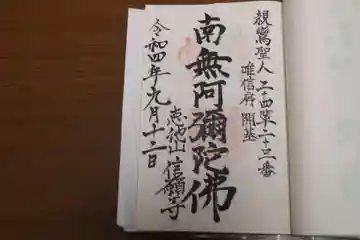 親鸞聖人二十四輩二十三番
唯信房 開基
南無阿彌陀佛
信願寺
令和四年九月十二日